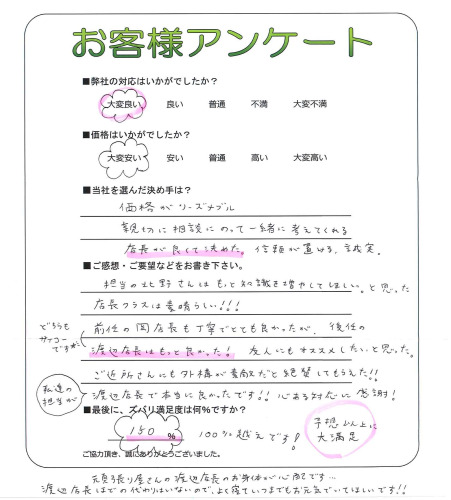 お客様アンケート
■弊社の対応はいかがでしたか?
大変良い 良い 普通 不満 大変不満
■価格はいかがでしたか?
大変安い 安い 普通 高い 大変高い
■当社を選んだ決め手は?
価格がリーズナブル
親切に相談にのって一緒に考えてくれる
店長が良くて決めた。信頼が置ける、誠実。
■ご感想・ご要望などをお書き下さい。
担当の北野さんはもっと知識を増やしてほしい。と思った
店長クラスは素晴らしい!!!
前任の岡店長も丁寧でとても良かったが、後任の
どちらもサイコーです
渡辺店長はもっと良かった! 友人にもオススメしたい。と思った。
ご近所さんにも外構が素敵だと絶賛してもらえた!!
私達の担当が
渡辺店長で本当に良かったです!! 心ある対応に感謝!
■最後に、ズバリ満足度は何%ですか?
150 % 100%越えです!
予想以上に大満足
ご協力頂き、誠にありがとうございました。
頑張り屋さんの渡辺店長のお身体が心配です…
渡辺店長ほどの代わりはいないので、よく寝ていつまでもお元気でいてほしいです!!